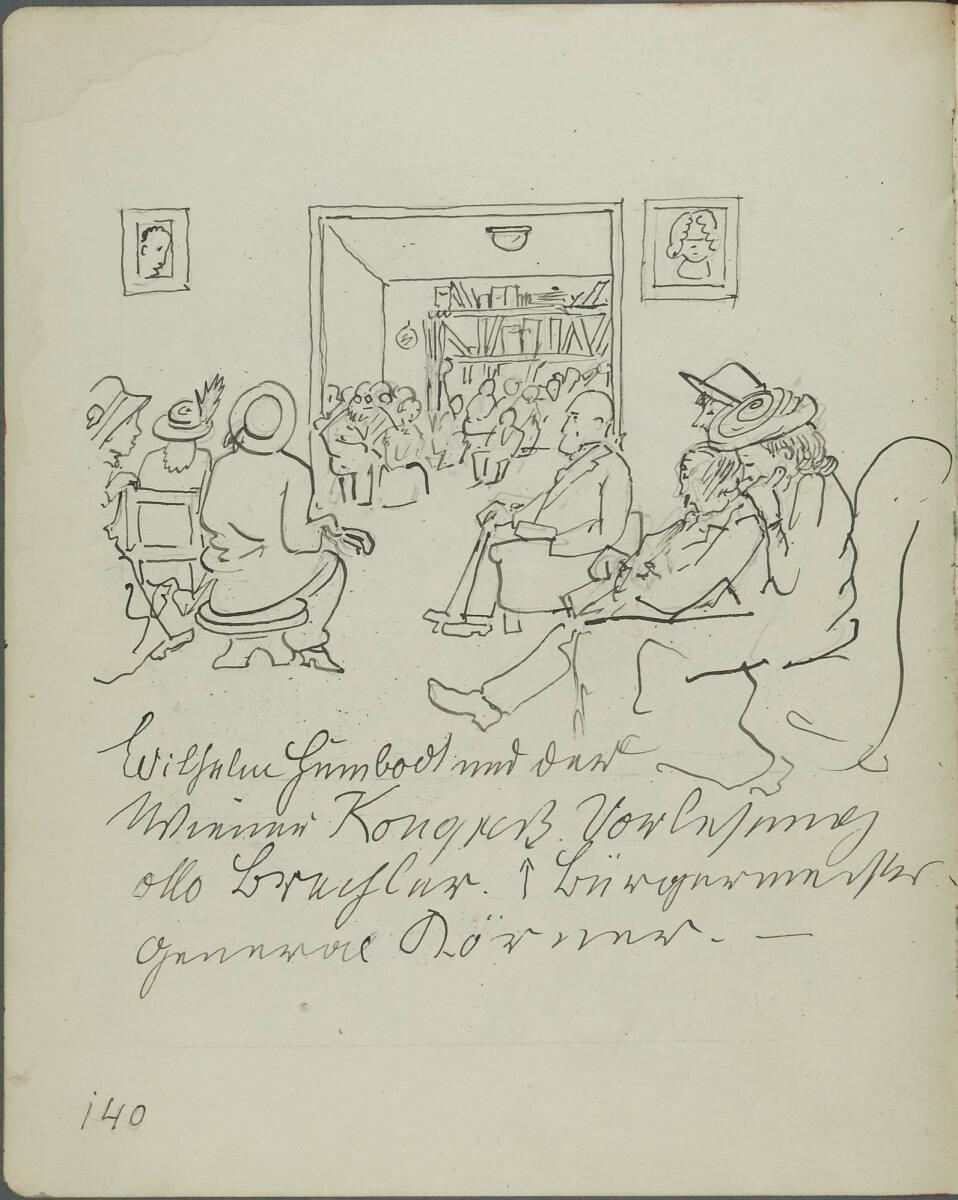 Wilhelm Humbodt und der
Wiener Kongreß. Vorlesung
Otto Brechler. ↑ Bürgermeister
General Körner. —
140